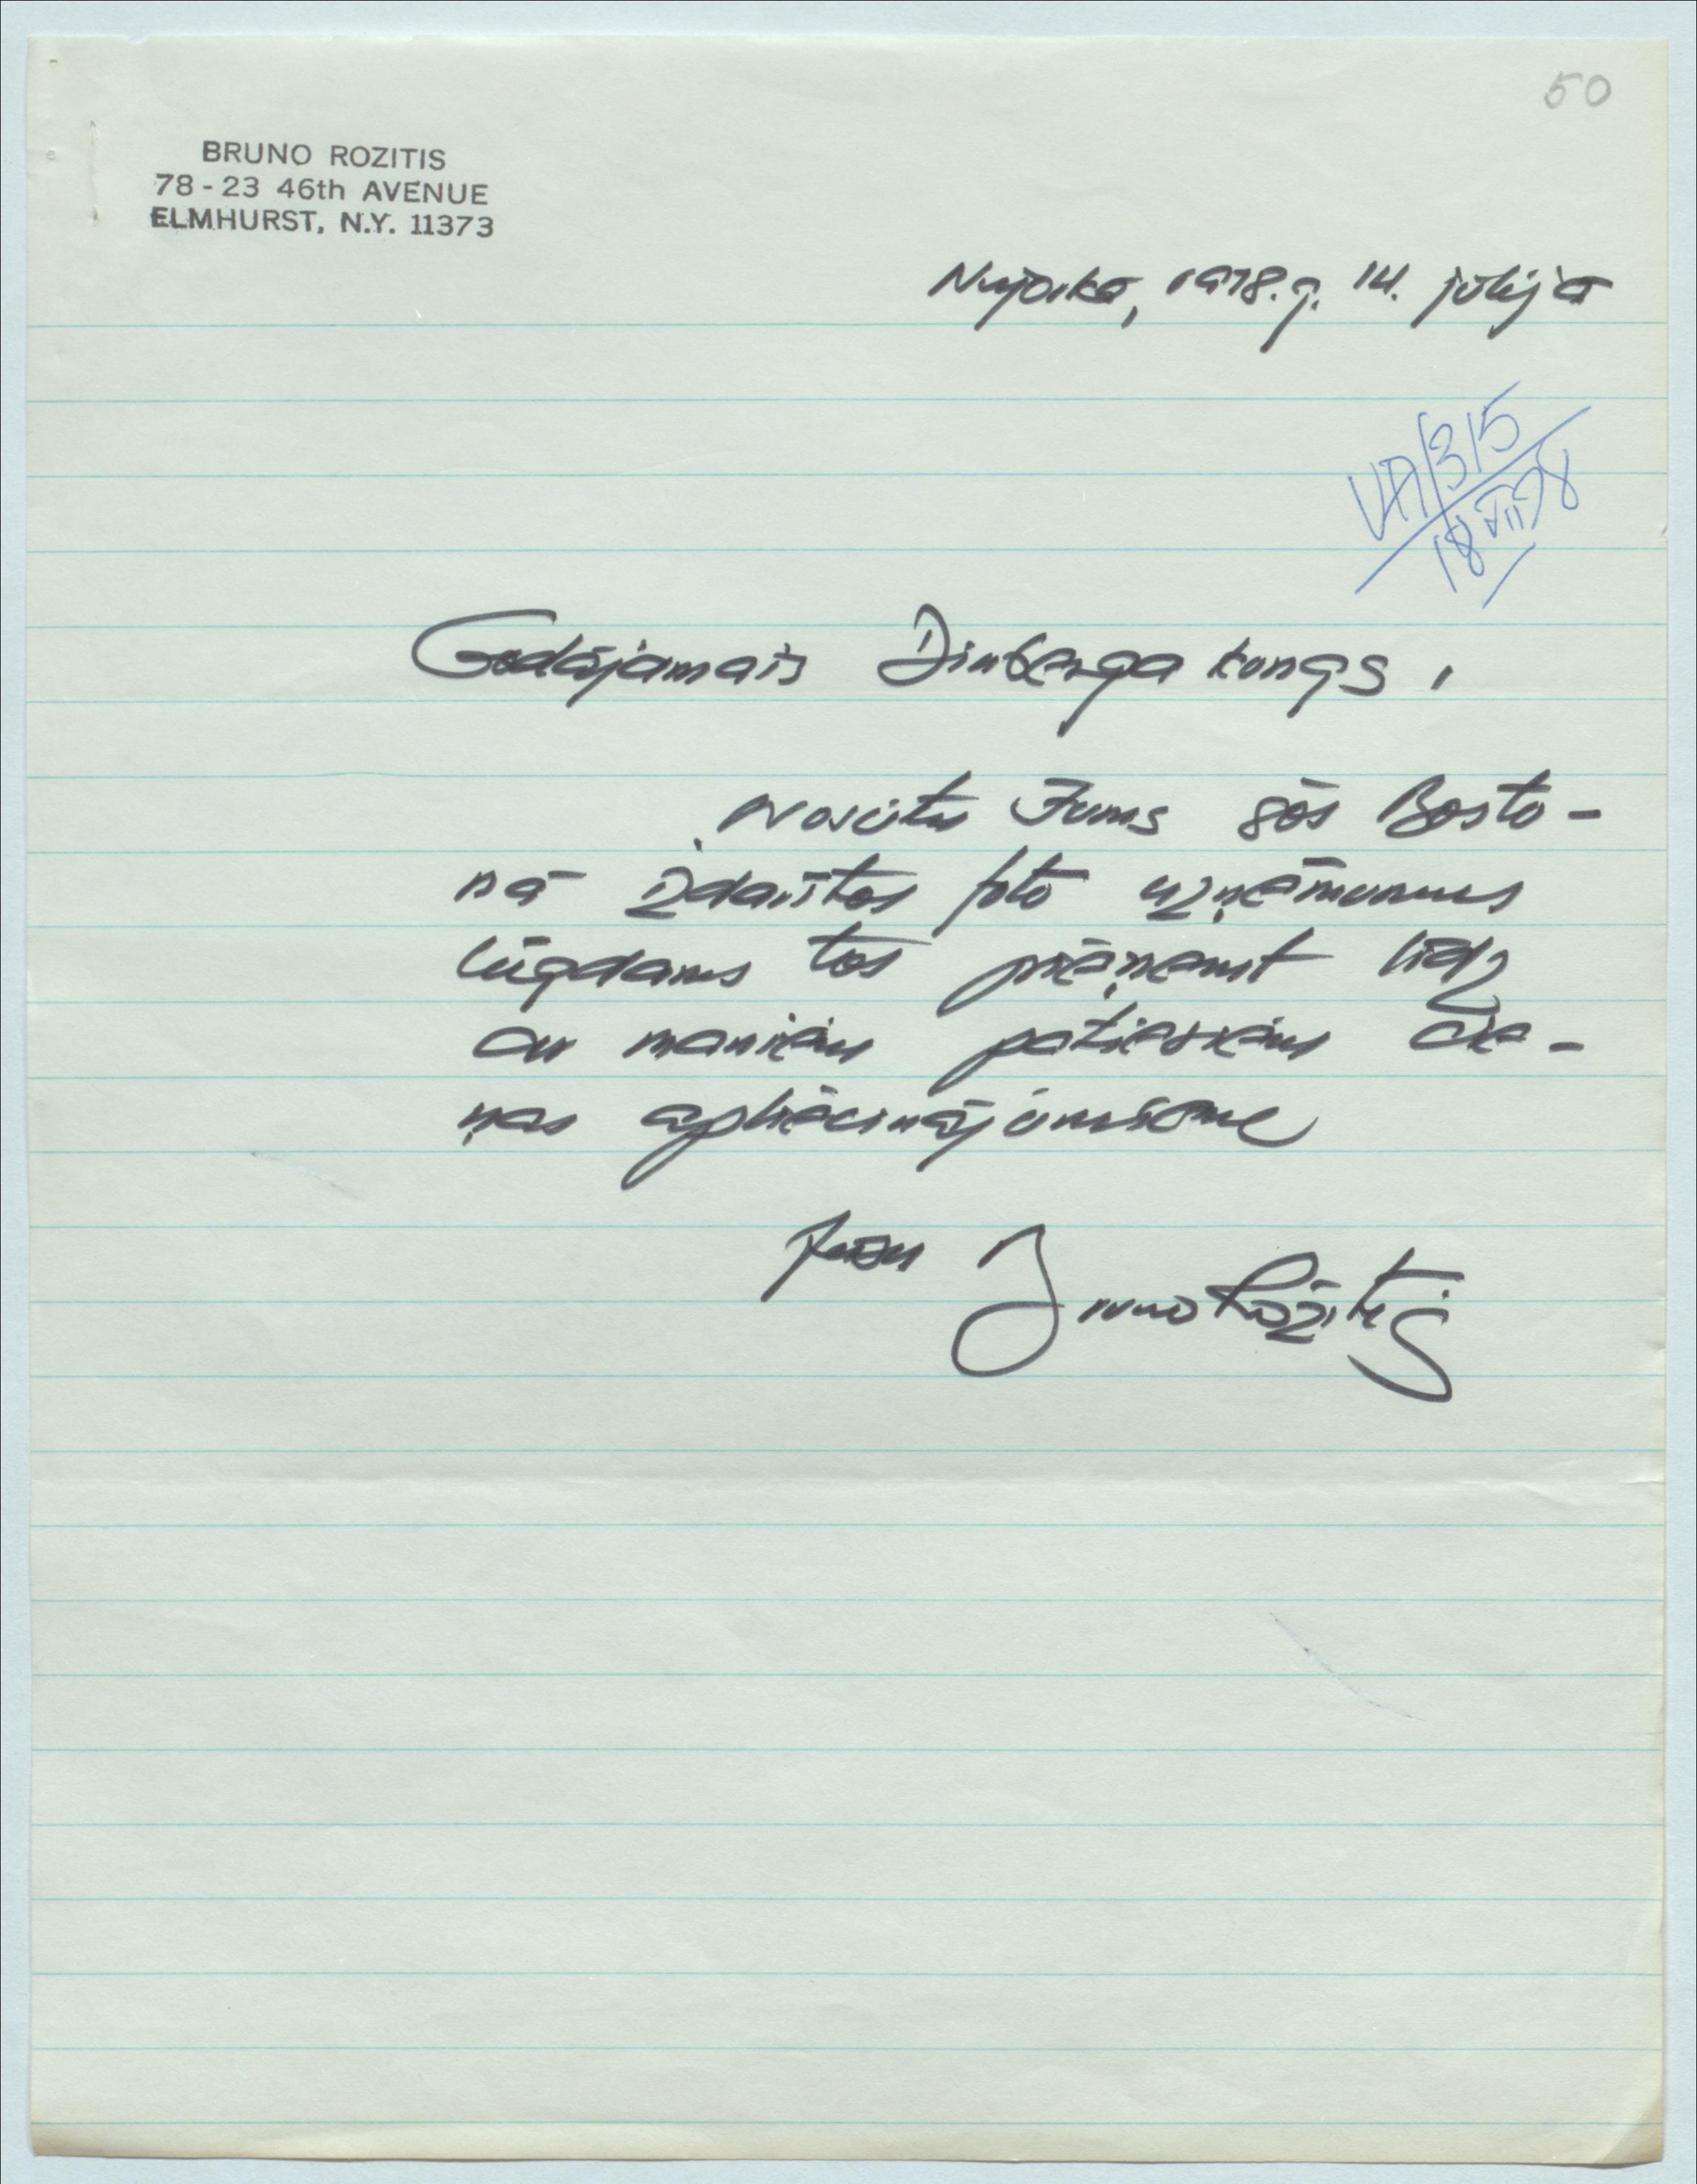 50
BRUNO ROZITIS
78-23 46th AVENUE
ELMHURST, N.Y. 11373
Ņujorkā, 1978.g. 14. jūlijā
VA/315
18 VII 78
Godājamais Dinberga kungs,
nosūtu Jums šos Bosto-
nā izdarītos foto uzņēmumus
lūgdams tos pieņemt līdz
ar maniem patiesiem cie-
ņas apliecinājumiem
Jūsu Bruno Rozītis